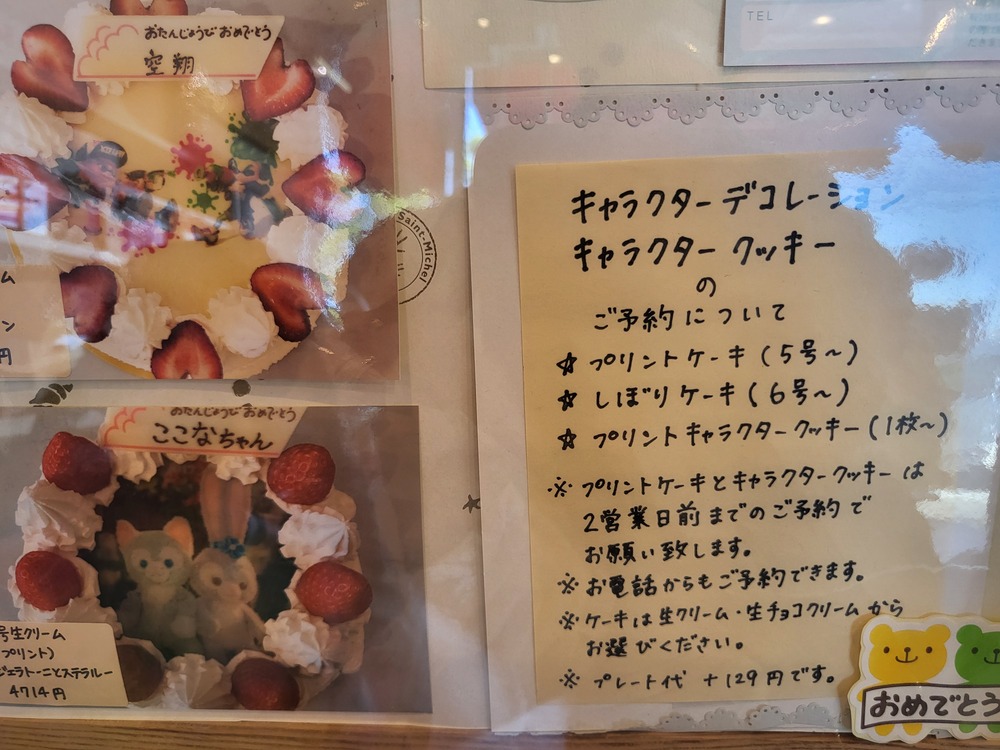 おたんじょうび おめでとう
空翔
ム
ン
円
Saint-Michel
おたんじょうび おめでとう
ここなちゃん
号生クリーム
プリント)
ジェラトーニとステラルー
4714円
TEL
キャラクターデコレーション
キャラクター クッキー
の
ご予約について
☆ プリントケーキ (5号〜)
☆ しぼりケーキ (6号〜)
☆ プリントキャラクタークッキー (1枚〜)
※ プリントケーキとキャラクタークッキー は
2営業日前までのご予約で
お願い致します。
※ お電話からもご予約できます。
※ ケーキは生クリーム・生チョコクリームから
お選びください。
※ プレート代 +129円です。
おめでとう